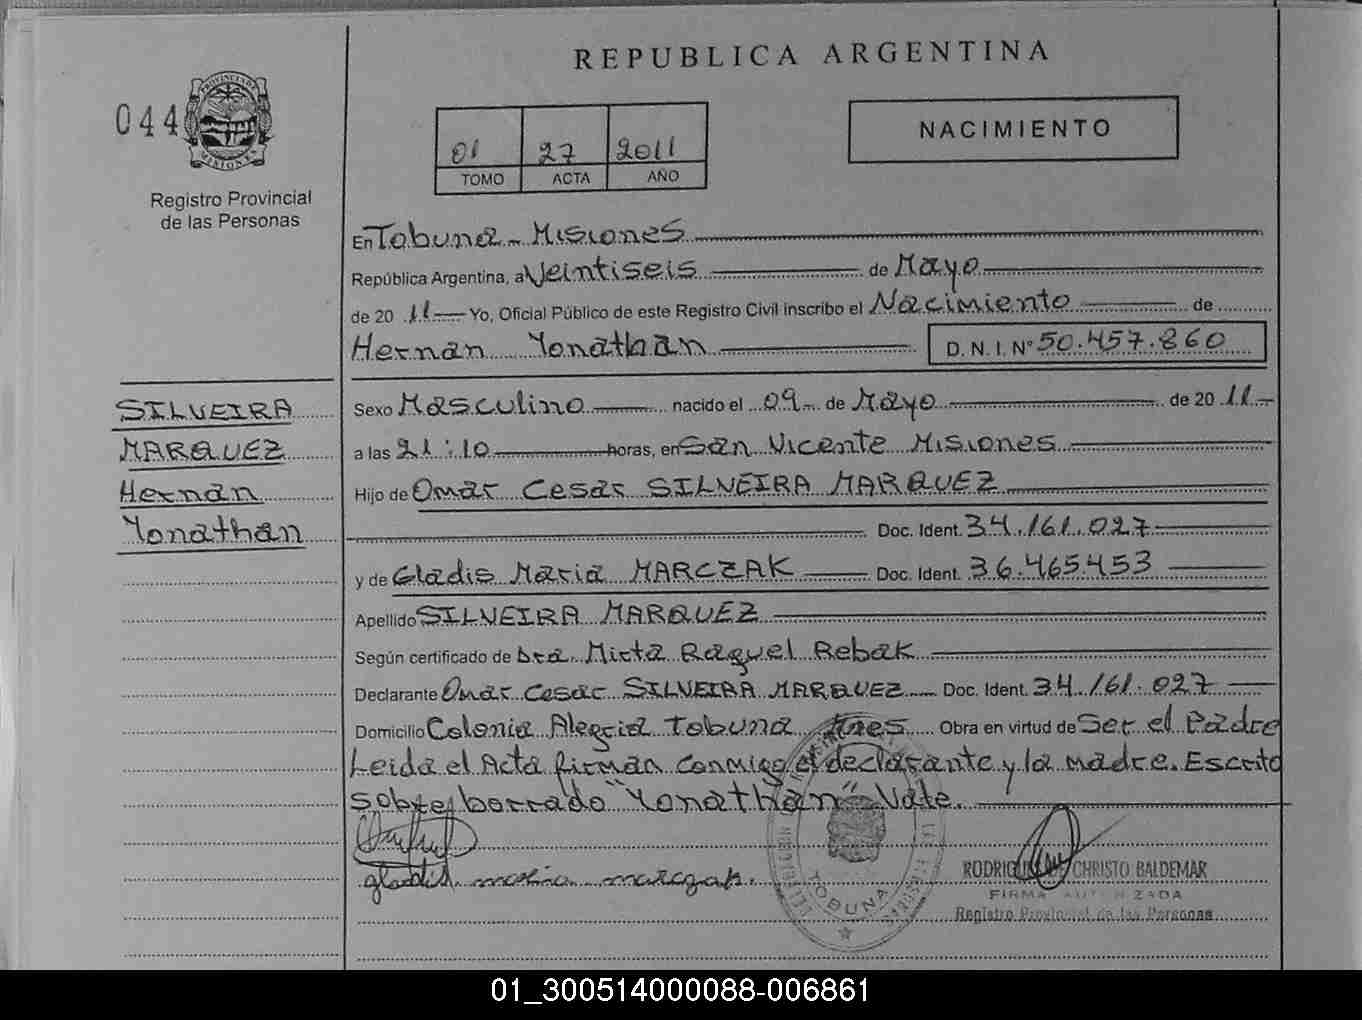 REPUBLICA ARGENTINA
044
PROVINCIA DE
MISIONES
Registro Provincial
de las Personas
01 27 2011
TOMO ACTA AÑO
NACIMIENTO
En Tobuna - Misiones
República Argentina, a Veintiseis de Mayo
de 20 11 Yo, Oficial Público de este Registro Civil inscribo el Nacimiento de
Hernan Yonathan D. N. I. N° 50.457.860
SILVEIRA
MARQUEZ
Hernan
Yonathan
Sexo Masculino nacido el 09 de Mayo de 20 11
a las 21:10 horas, en San Vicente Misiones
Hijo de Omar Cesar SILVEIRA MARQUEZ
Doc. Ident. 34.161.027
y de Gladis Maria MARCZAK Doc. Ident. 36.465.453
Apellido SILVEIRA MARQUEZ
Según certificado de Dra. Mirta Raquel Rebak
Declarante Omar Cesar SILVEIRA MARQUEZ Doc. Ident. 34.161.027
Domicilio Colonia Alegria Tobuna Mnes Obra en virtud de Ser el Padre
Leida el Acta firman conmigo el declarante y la madre. Escrito
sobre borrado "Yonathan" Vale.
gladis maria marczak.
TOBUNA
CHRISTO BALDEMAR
FIRMA AUTORIZADA
Registro Provincial de las Personas
01_300514000088-006861